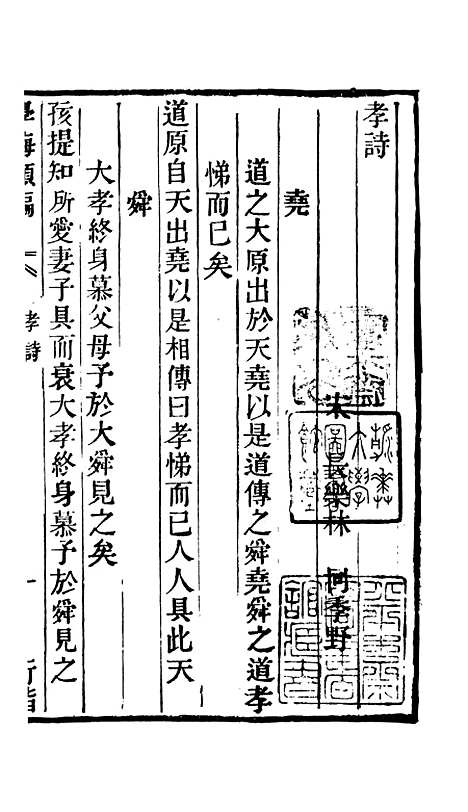 孝詩
宋 長樂林 同季野
堯
道之大原出於天堯以是道傳之舜堯舜之道孝
悌而已矣
道原自天出堯以是相傳曰孝悌而已人人具此天
舜
大孝終身慕父母予於大舜見之矣
孩提知所愛妻子具而衰大孝終身慕予於舜見之
學海類編 孝詩 一 行詣